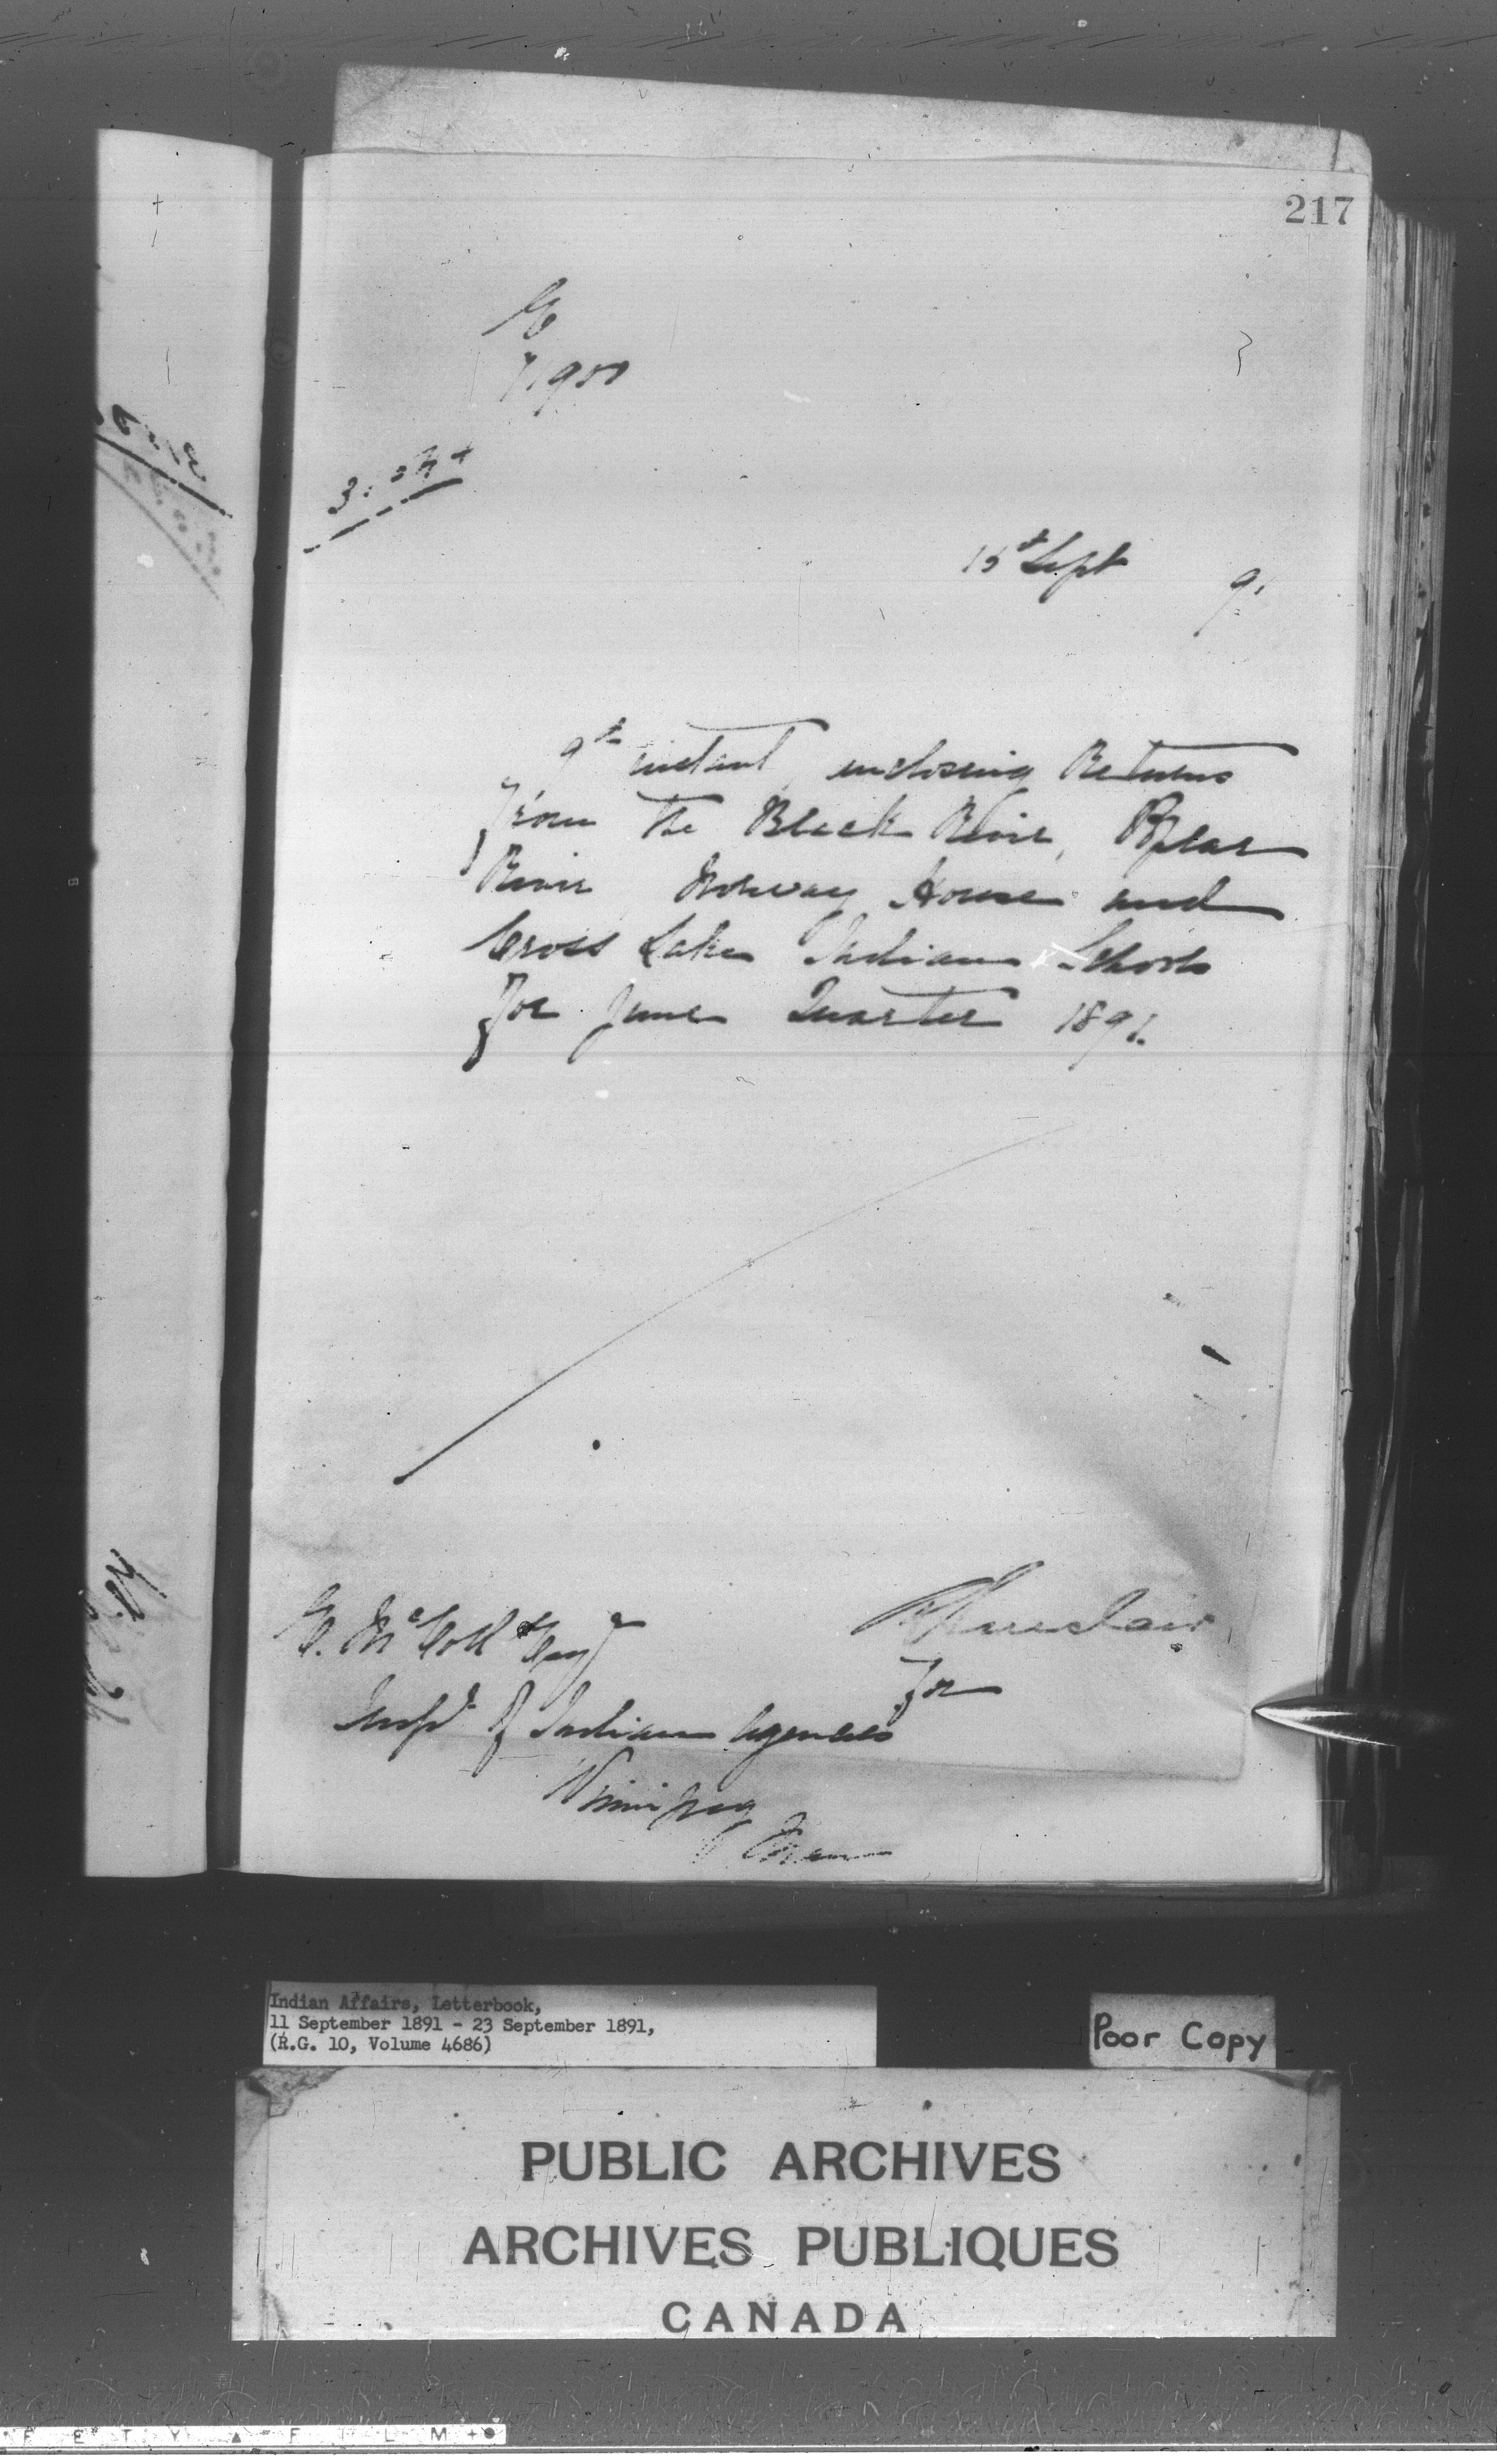 217
15th Sept 91
9th instant, enclosing Returns
from the Black River, Poplar
River, Norway House and
Cross Lake Indian Schools
for June Quarter 1891.
R Sinclair
for
E. McColl Esqr
Insp. of Indian Agencies
Winnipeg
Man
Indian Affairs, Letterbook,
11 September 1891 - 23 September 1891,
(R.G. 10, Volume 4686)
Poor Copy
PUBLIC ARCHIVES
ARCHIVES PUBLIQUES
CANADA
F E T Y ▲ F I L M